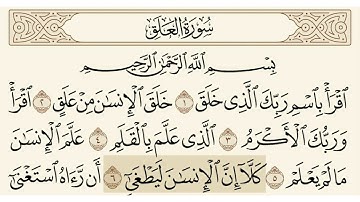 سُورَةُ العَلَقِ
بِسْمِ ٱللَّهِ ٱلرَّحْمَٰنِ ٱلرَّحِيمِ
ٱقْرَأْ بِٱسْمِ رَبِّكَ ٱلَّذِى خَلَقَ ١ خَلَقَ ٱلْإِنسَٰنَ مِنْ عَلَقٍ ٢ ٱقْرَأْ
وَرَبُّكَ ٱلْأَكْرَمُ ٣ ٱلَّذِى عَلَّمَ بِٱلْقَلَمِ ٤ عَلَّمَ ٱلْإِنسَٰنَ
مَا لَمْ يَعْلَمْ ٥ كَلَّآ إِنَّ ٱلْإِنسَٰنَ لَيَطْغَىٰٓ ٦ أَن رَّءَاهُ ٱسْتَغْنَىٰٓ